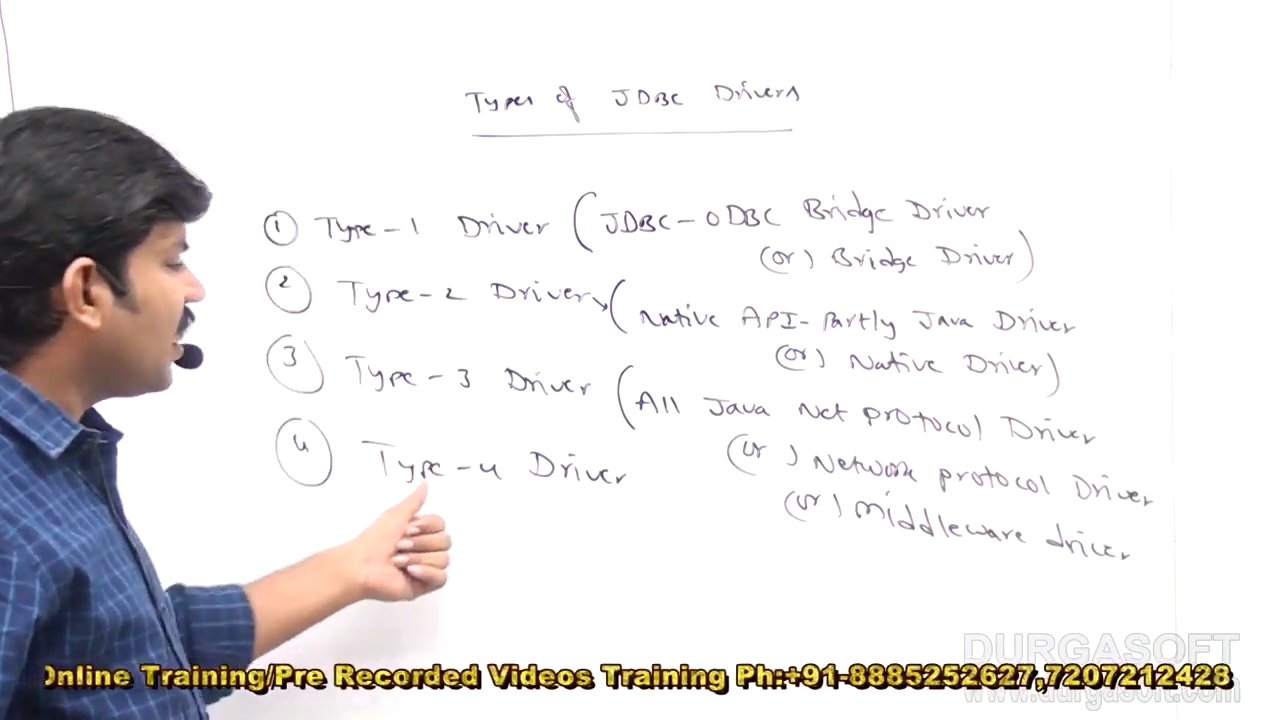 Types of JDBC Drivers
① Type-1 Driver (JDBC-ODBC Bridge Driver
(or) Bridge Driver)
② Type-2 Driver (Native API-Partly Java Driver
(or) Native Driver)
③ Type-3 Driver (All Java Net protocol Driver
(or) Network protocol Driver
(or) middleware driver
④ Type-4 Driver
DURGASOFT
www.durgasoft.com
Online Training/Pre Recorded Videos Training Ph:+91-8885252627,7207212428